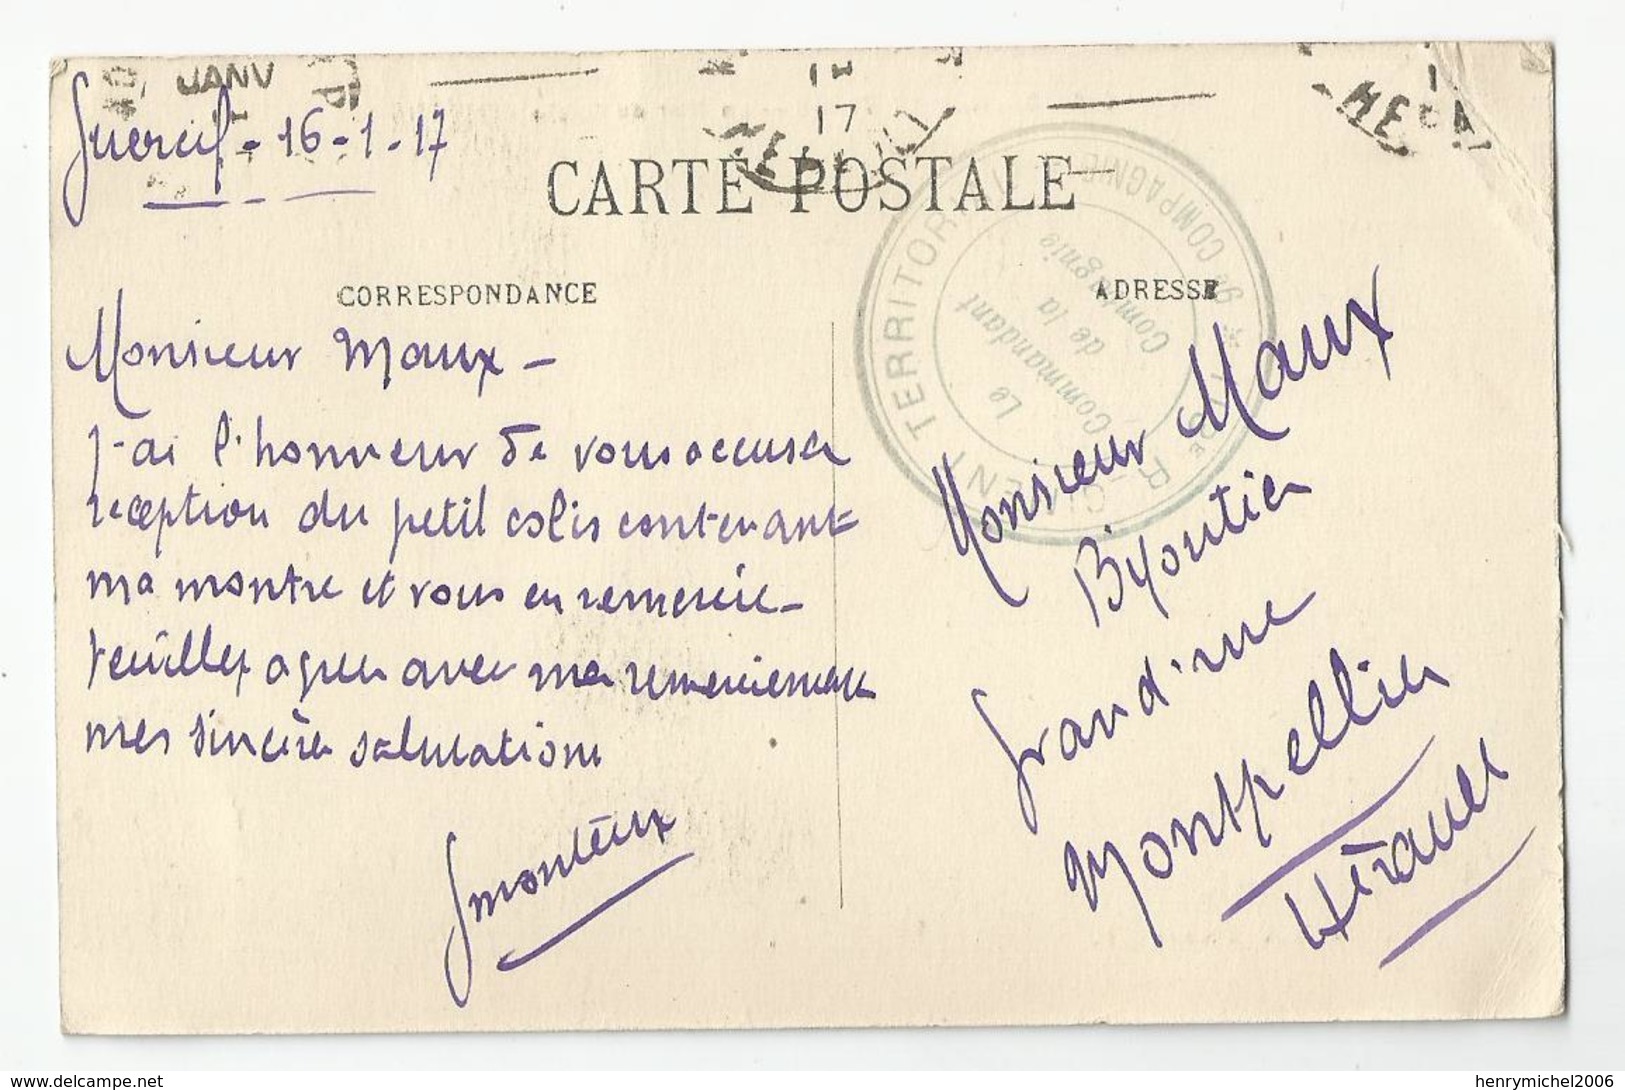 JANV
17
Guercif - 16-1-17
CARTE POSTALE
CORRESPONDANCE
ADRESSE
Monsieur Maux -
J'ai l'honneur de vous accuser
reception du petit colis contenant
ma montre et vous en remercie -
Veuillez agreer avec mes remerciements
mes sincères salutations
Gmonteux
Monsieur Maux
Bijoutier
Grand'rue
Montpellier
Hérault
RÉGIMENT TERRITORIAL
9e COMPAGNIE
Le
Commandant
de la
Compagnie
www.delcampe.net
henrymichel2006